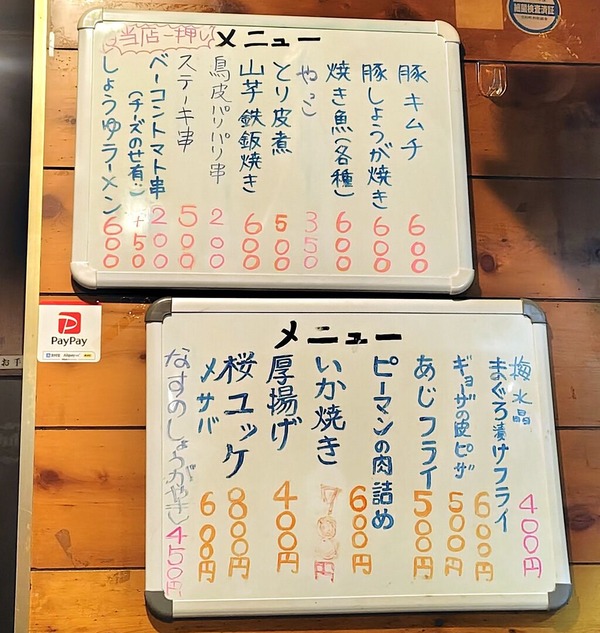 メニュー
豚キムチ 600
豚しょうが焼き 600
焼き魚(各種) 600
やっこ 350
とり皮煮 500
山芋鉄鈑焼き 600
鳥皮パリパリ串 200
ステーキ串 500
ベーコントマト串 200
(チーズのせ有) +50
当店一押し
しょうゆラーメン 600
PayPay
メニュー
梅水晶 400円
まぐろ漬けフライ 600円
ギョーザの皮ピザ 500円
あじフライ 500円
ピーマンの肉詰め 600円
いか焼き 700円
厚揚げ 400円
桜ユッケ 800円
〆サバ 600円
なすのしょうがやき 450円